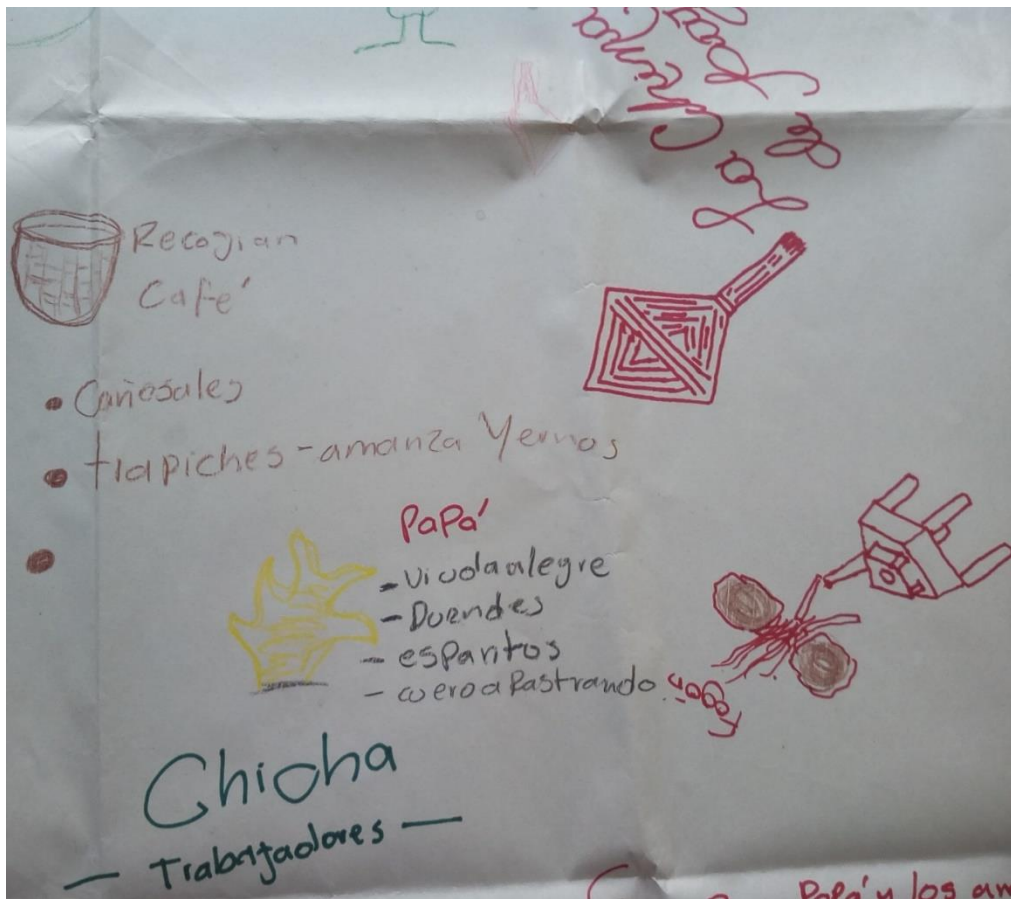 La China
el
Recogian
Cafe'
Cañasales
trapiches-amanza Yernos
PaPa'
-viudaalegre
-Duendes
-esPantos
-cueroaRastrando
Fogon
Chicha
-Trabajadores-
Papá y los am